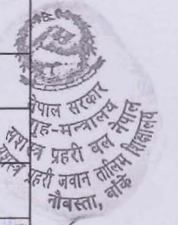 नेपाल सरकार
गृह-मन्त्रालय
सशस्त्र प्रहरी वल नेपाल
सशस्त्र प्रहरी जवान तालिम शिक्षालय
नौवस्ता, बाँके